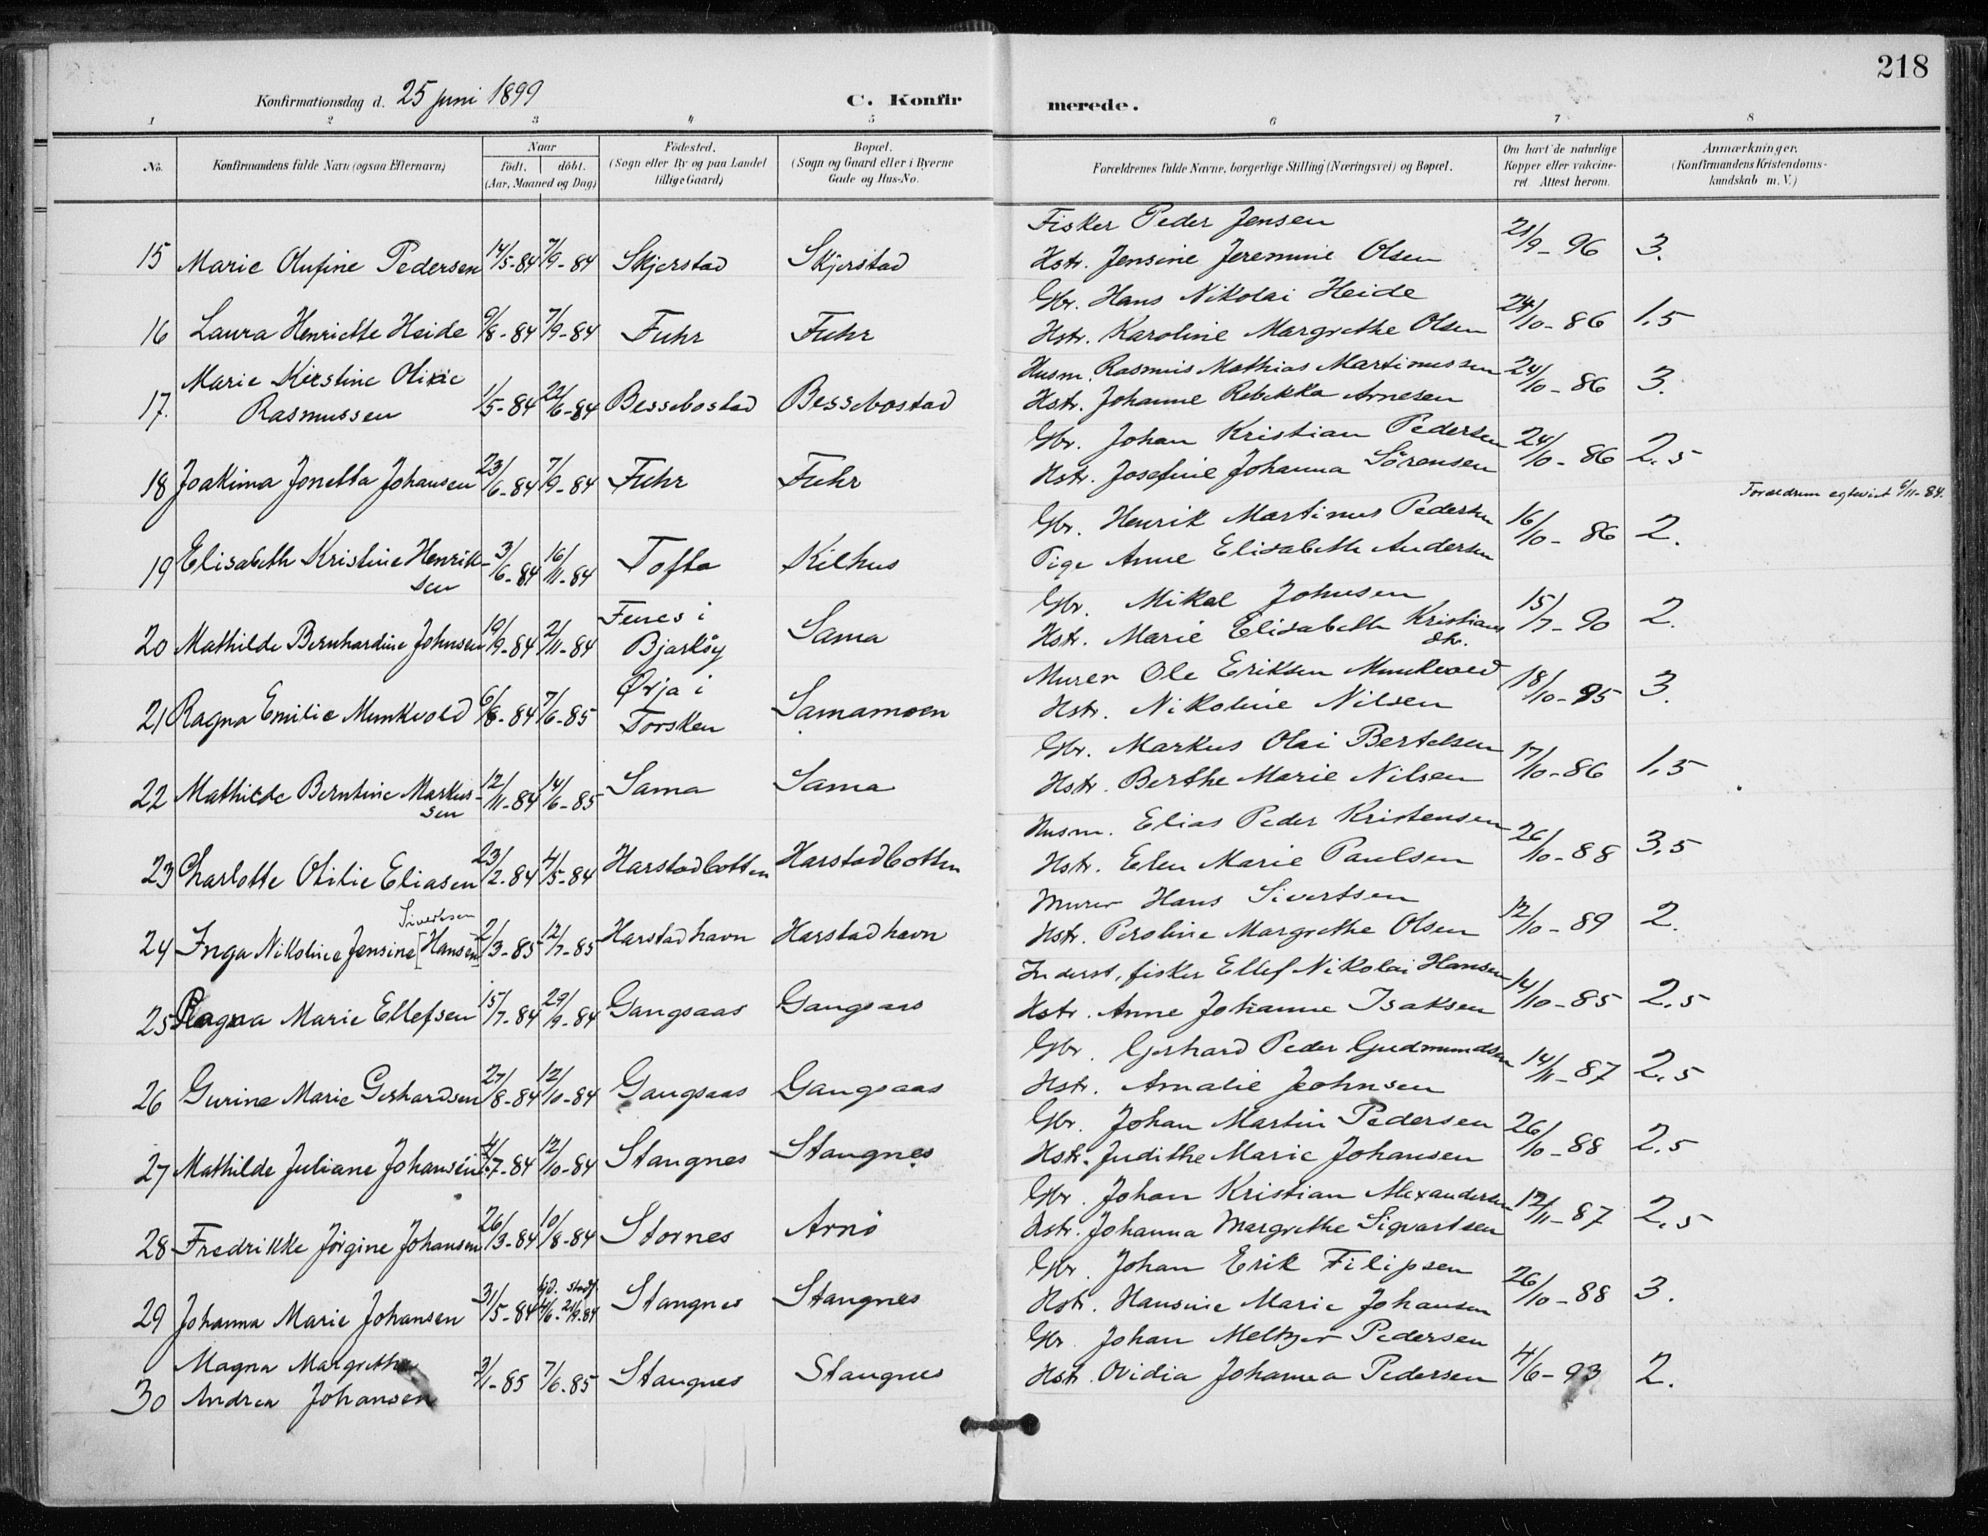 218
Konfirmationsdag d. 25 juni 1899
C. Konfir merede.
1 2 3 4 5 6 7 8
No. Konfirmandens fulde Navn (ogsaa Efternavn) Naar født. døbt. (Aar, Maaned og Dag) Fødested. (Sogn eller By og paa Landet tillige Gaard) Bopæl. (Sogn og Gaard eller i Byerne Gade og Hus-No. Forældrenes fulde Navne, borgerlige Stilling (Næringsvei) og Bopæl. Om havt de naturlige Kopper eller vakcineret. Attest herom. Anmærkninger. (Konfirmandens Kristendomskundskab m. V.)
Fisker Peder Jensen
15 Marie Olufine Pedersen 14/5-84 7/9-84 Skjerstad Skjerstad Hstr. Jensine Jeremine Olsen 21/9-96 3.
Gbr. Hans Nikolai Heide
16 Laura Henriette Heide 9/8-84 7/9-84 Fuhr Fuhr Hstr. Karoline Margrethe Olsen 24/10-86 1.5
Marie Kirstine Olivie Husm. Rasmus Mathias Martinussen
17. Rasmussen 1/5-84 22/6-84 Bessebostad Bessebostad Hstr. Johanne Rebekka Arnesen 24/10-86 3.
Gbr. Johan Kristian Pedersen
18 Joakima Jonetta Johansen 23/6-84 7/9-84 Fuhr Fuhr Hstr. Josefine Johanna Sörensen 24/10-86 2.5
Forældrene egteviet 6/11-84.
Gbr. Henrik Martinus Pedersen
19 Elisabeth Kristine Henrik- 3/6-84 16/11-84 Tofta Kilhus Pige Anne Elisabeth Andersen 16/10-86 2.
sen
Fenes i Gbr. Mikal Johnsen
20 Mathilde Bernhardine Johnsen 19/9-84 2/11-84 Bjarköy Sama Hstr. Marie Elisabeth Kristians 15/7-90 2.
dtr.
Ørja i Murer Ole Eriksen Munkvold
21 Ragna Emilie Munkvold 6/8-84 7/6-85 Torsken Samamoen Hstr. Nikoline Nilsen 18/10-95 3.
Gbr. Markus Olai Bertelsen
22 Mathilde Berntine Markus- 12/11-84 14/6-85 Sama Sama Hstr. Berthe Marie Nilsen 17/10-86 1.5
sen
Husm. Elias Peder Kristensen
23 Charlotte Otilie Eliasen 23/2-84 4/5-84 Harstadbotten Harstadbotten Hstr. Elen Marie Paulsen 26/10-88 3.5
Sivertsen Murer Hans Sivertsen
24 Inga Nikoline Jensine [Hansen] 2/3-85 12/7-85 Harstadhavn Harstadhavn Hstr. Peroline Margrethe Olsen 12/10-89 2.
Inderst, fisker Ellef Nikolai Hansen
25 Ragna Marie Ellefsen 15/7-84 29/9-84 Gangsaas Gangsaas Hstr. Anne Johanne Isaksen 14/10-85 2.5
Gbr. Gerhard Peder Gudmundsen
26 Gurine Marie Gerhardsen 27/8-84 12/10-84 Gangsaas Gangsaas Hstr. Amalie Johnsen 14/11-87 2.5
Gbr. Johan Martin Pedersen
27 Mathilde Juliane Johansen 4/7-84 12/10-84 Stangnes Stangnes Hstr. Judithe Marie Johansen 26/10-88 2.5
Gbr. Johan Kristian Alexandersen
28 Fredrikke Jørgine Johansen 26/3-84 10/8-84 Stornes Arnö Hstr. Johanna Margrethe Sigvartsen 12/11-87 2.5
Gbr. Johan Erik Filipsen
29 Johanna Marie Johansen 31/5-84 hjd. stadf. 4/6-21/9-84 Stangnes Stangnes Hstr. Hansine Marie Johansen 26/10-88 3.
Magna Margrethe Gbr. Johan Meltzer Pedersen
30 Andrea Johansen 3/1-85 7/6-85 Stangnes Stangnes Hstr. Ovidia Johanna Pedersen 4/6-93 2.